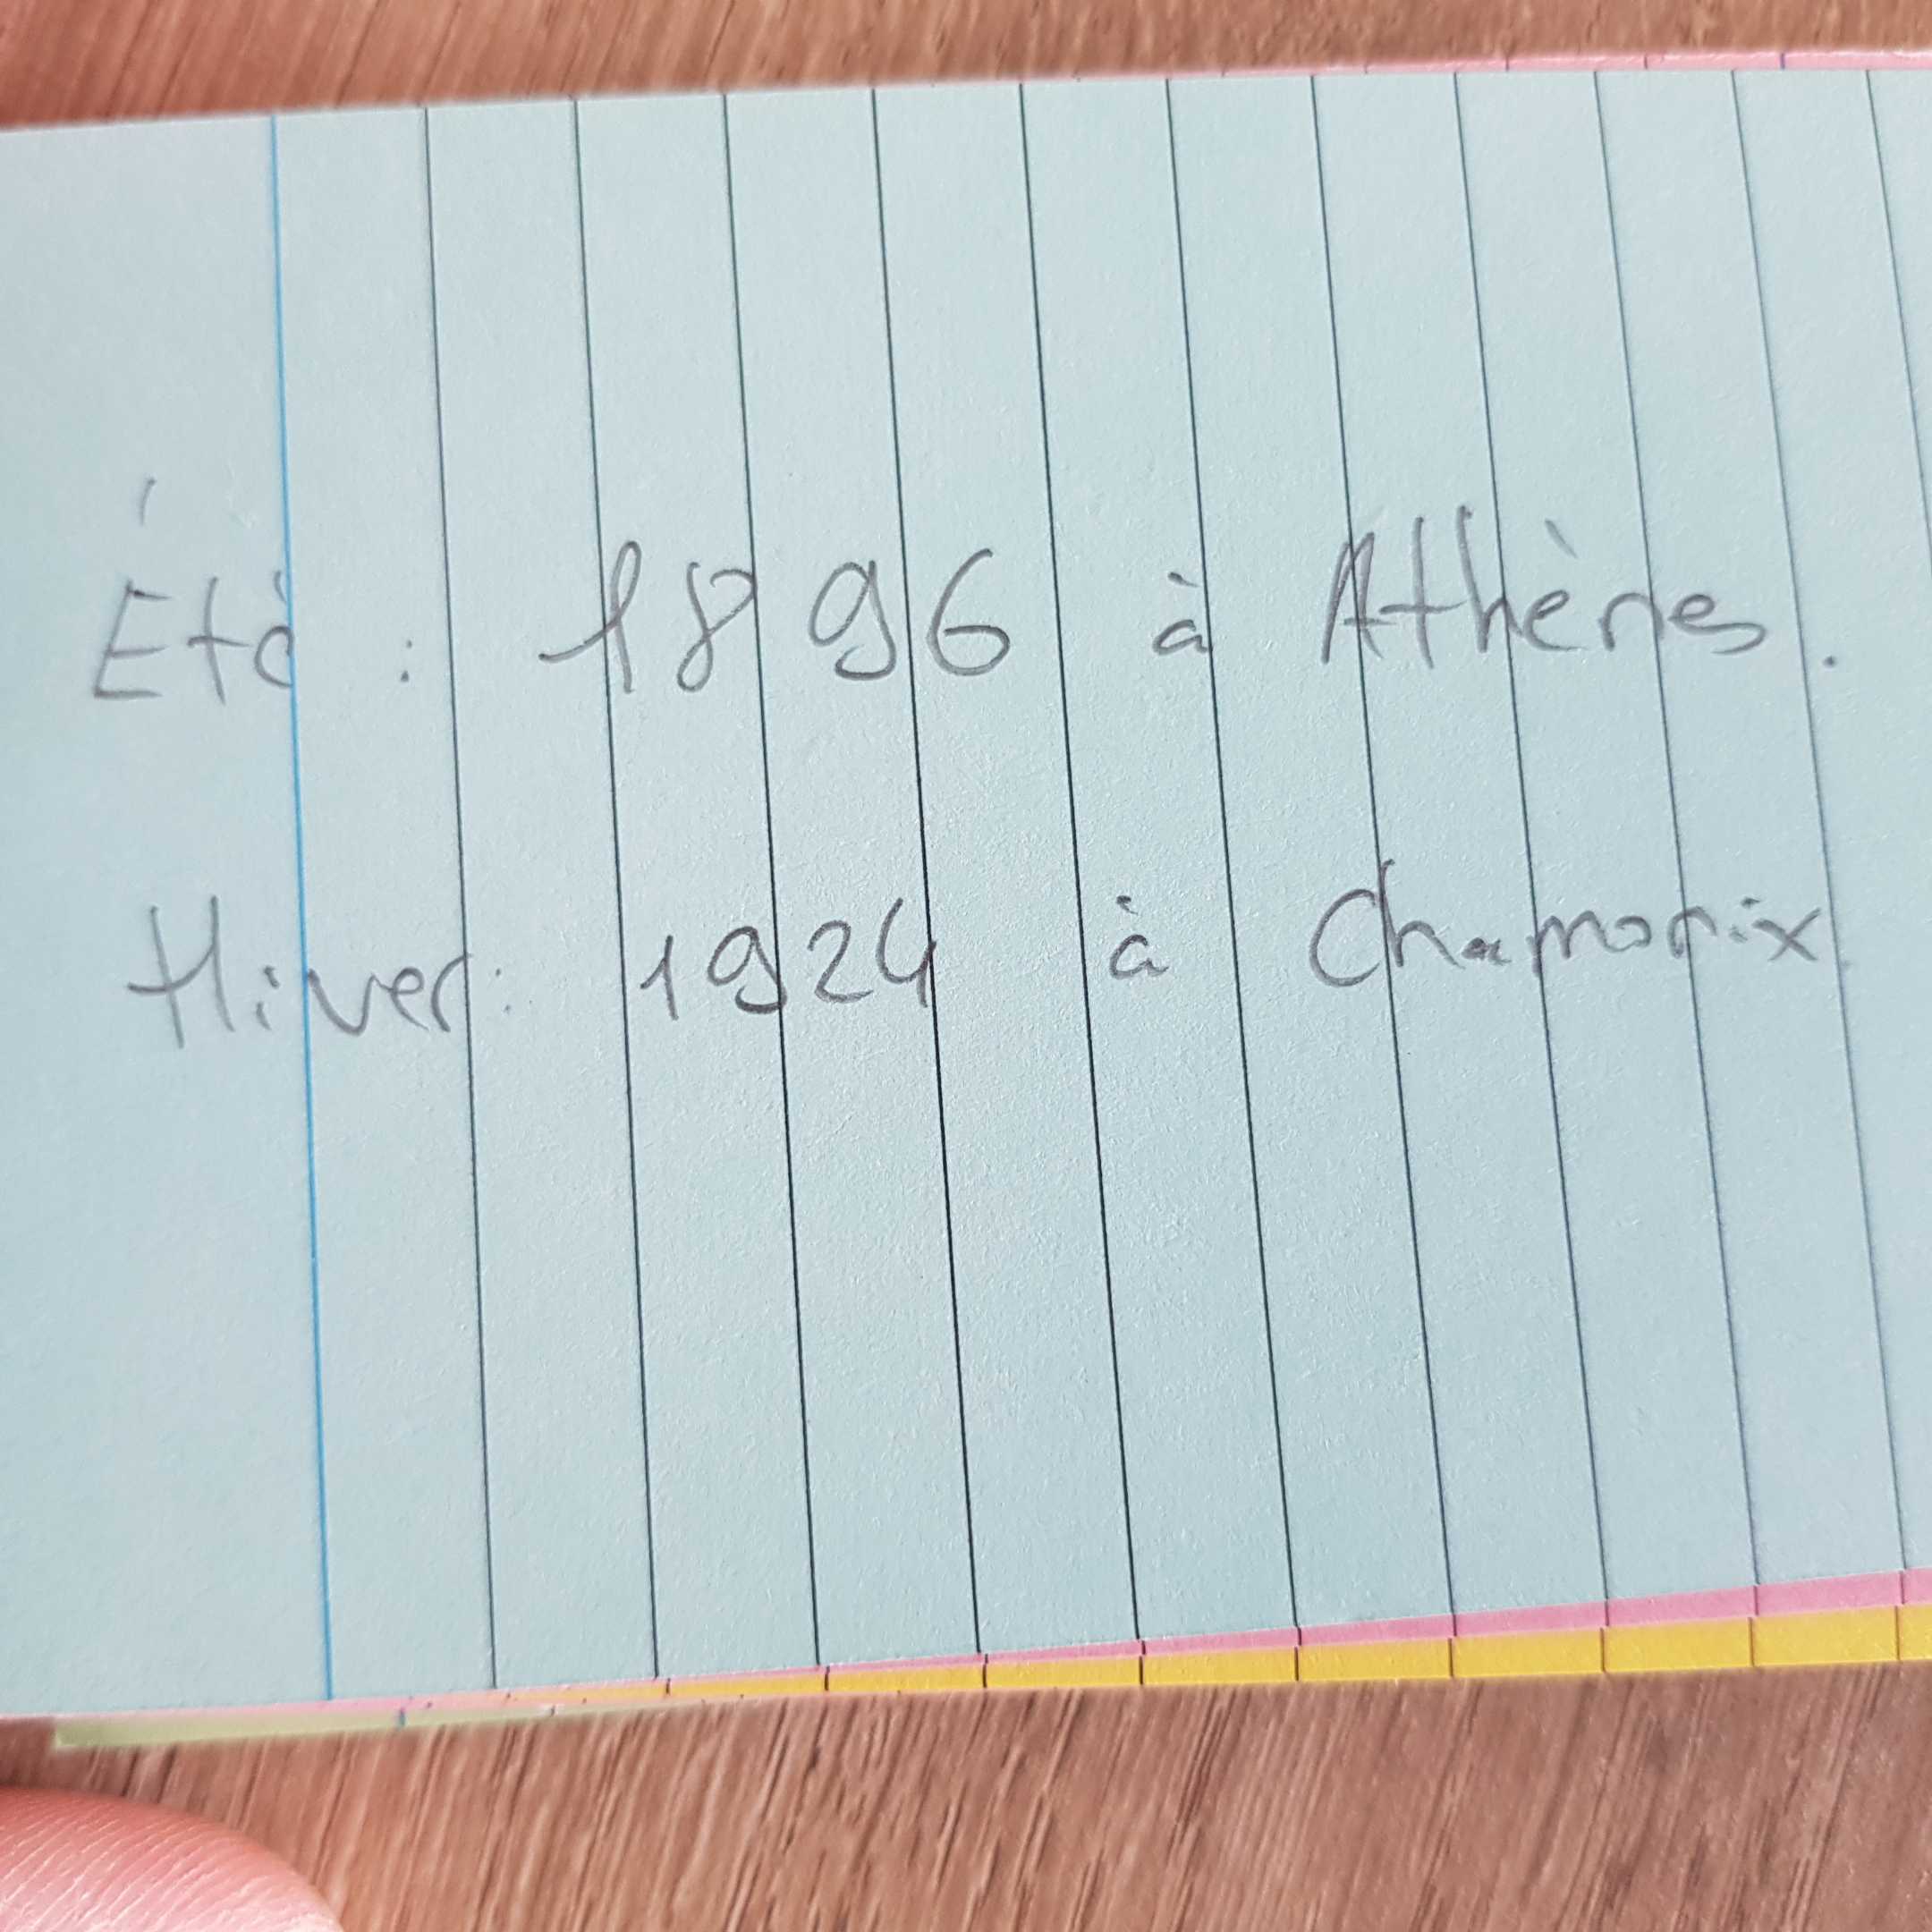 Été : 1896 à Athènes.
Hiver : 1924 à Chamonix